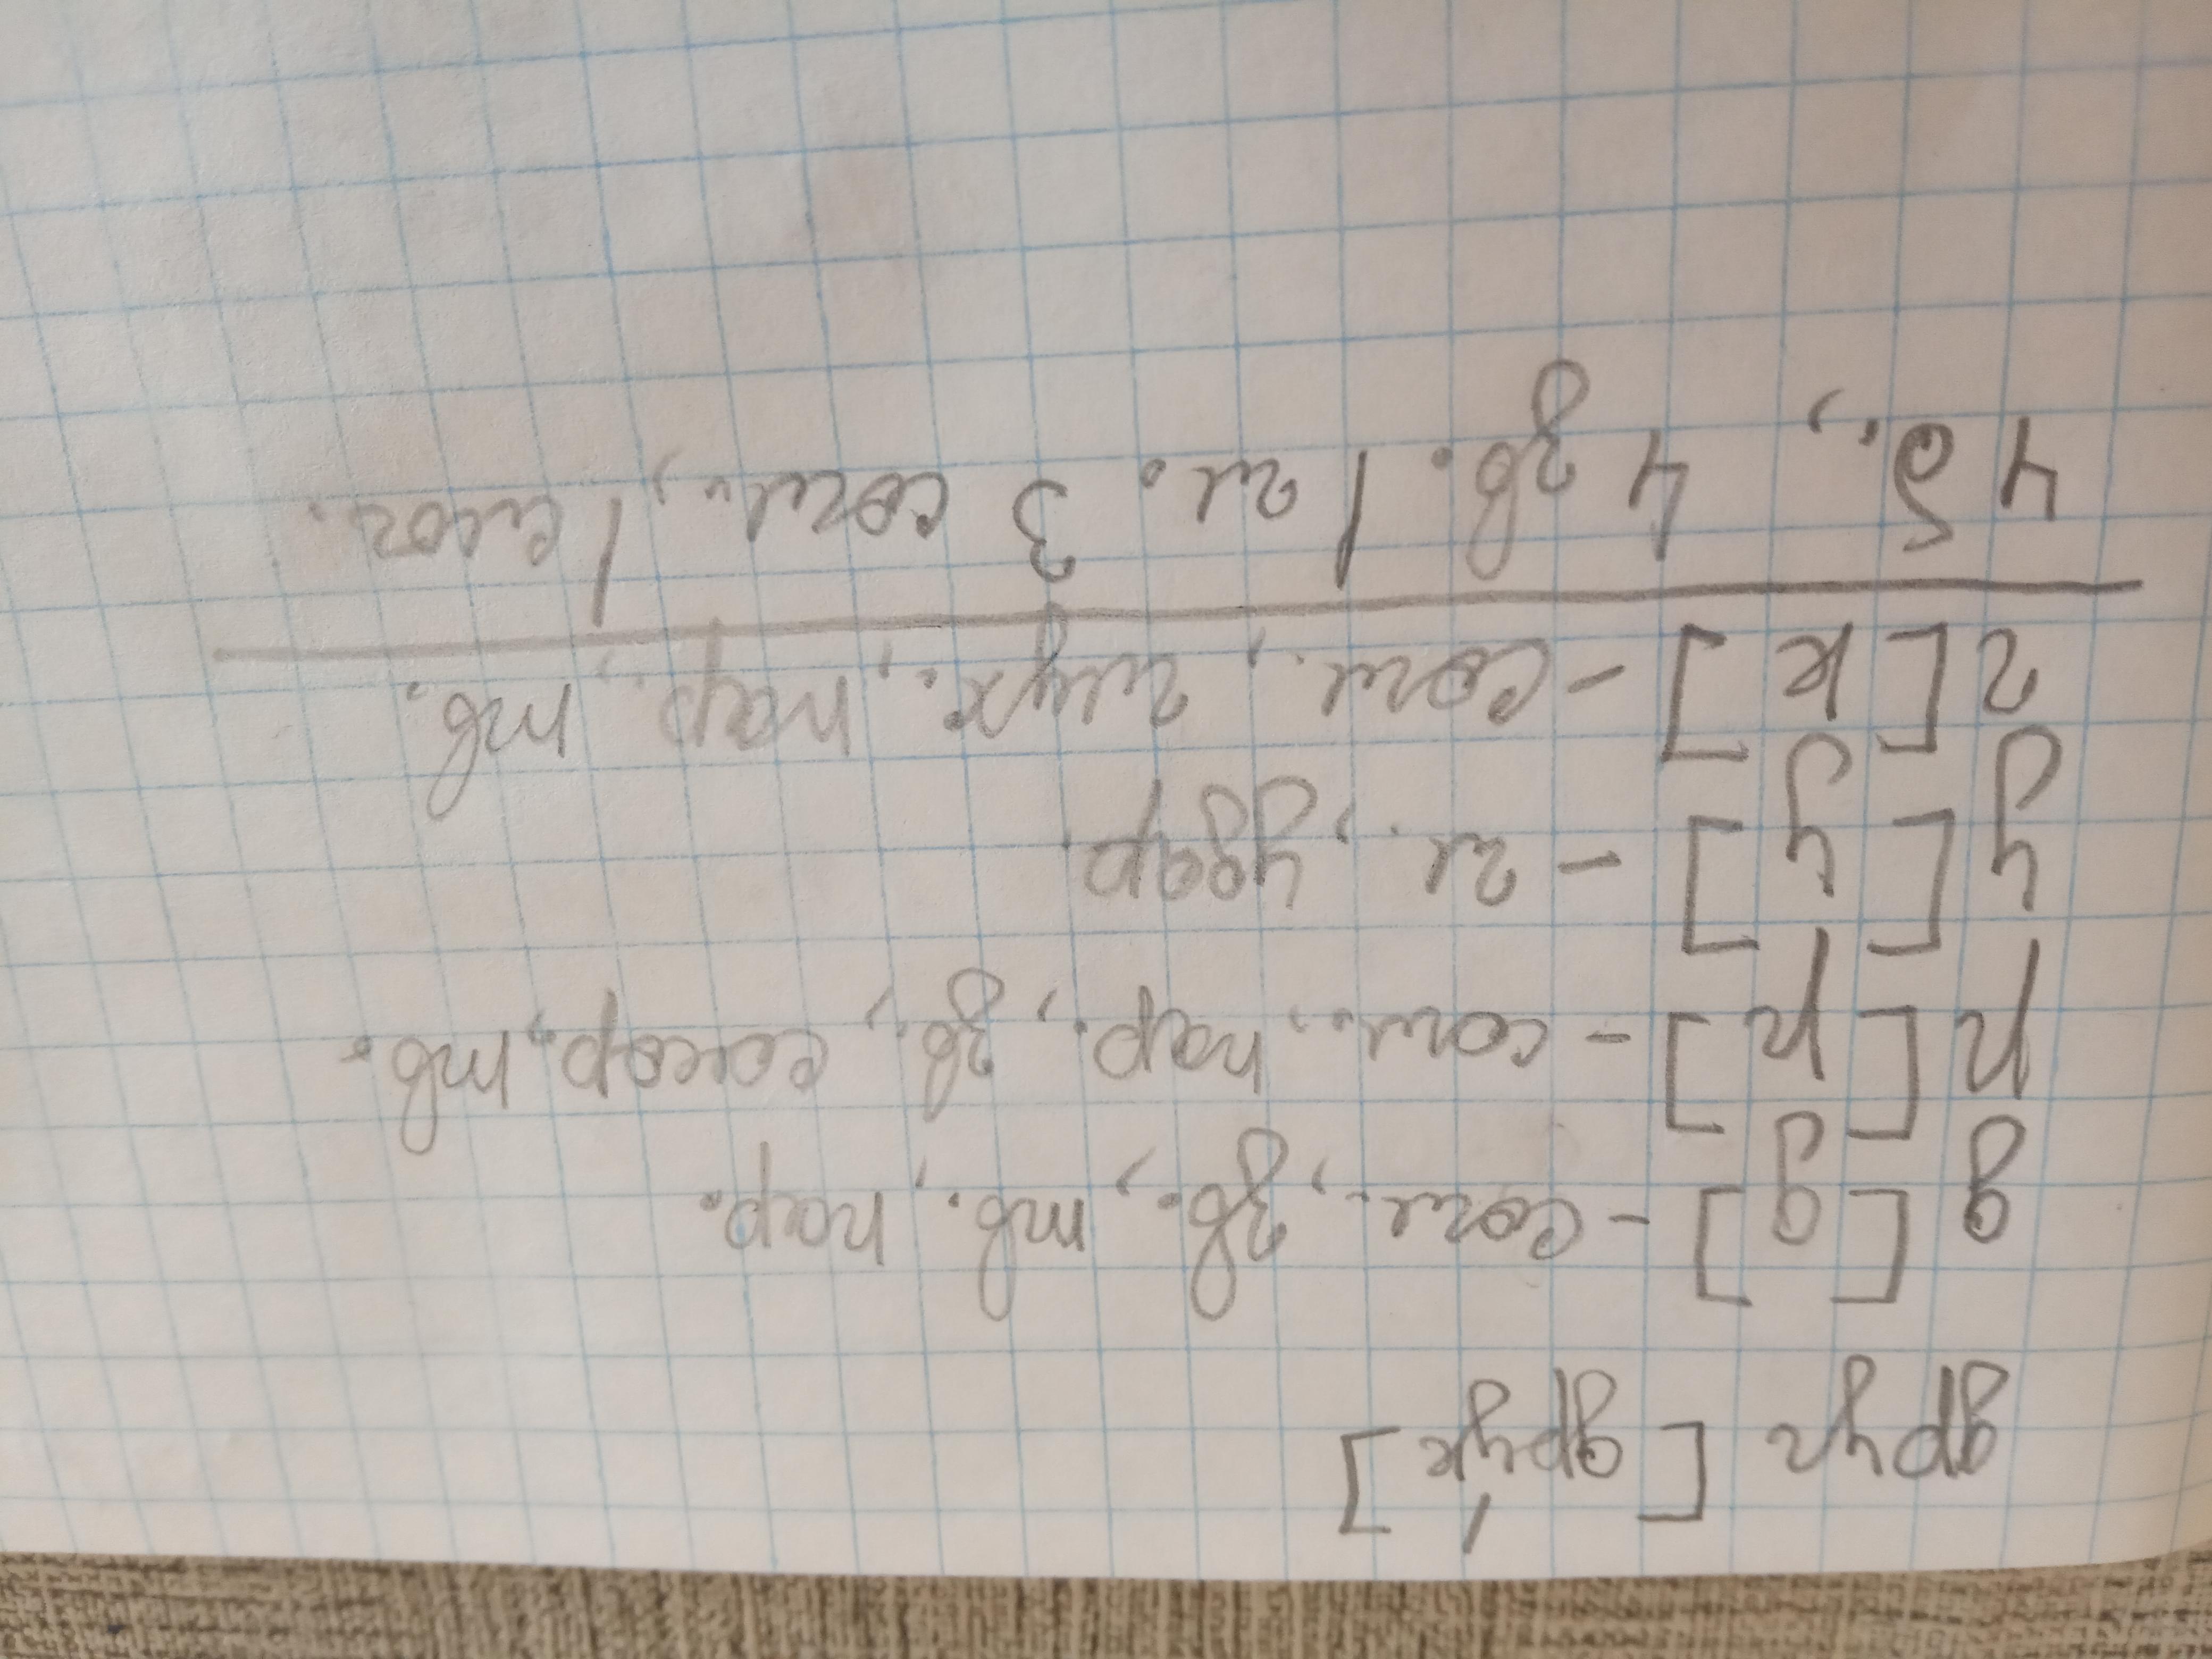 друг [дру́к]
д [д] - согл., зв., тв., пар.
р [р] - согл., пар., зв., сонор., тв.
у [у] - гл., удар.
г [к] - согл., глух., пар., тв.
4 б., 4 зв. 1 гл. 3 согл., 1 слог.